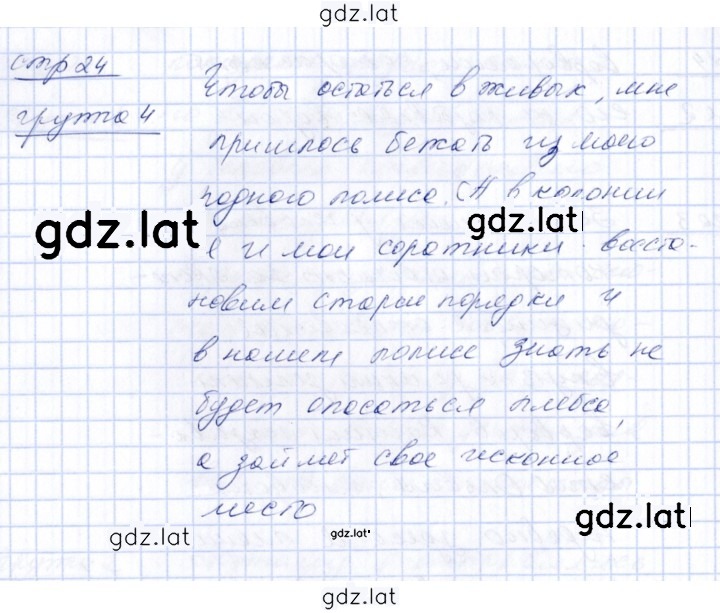 gdz.lat
стр 24
группа 4
Чтобы остаться в живых, мне
пришлось бежать из моего
родного полиса. В колонии
gdz.lat
gdz.lat
я и мои соратники восста-
новим старые порядки и
в нашем полисе знать не
будет опасаться плебса,
а займет свое исконное
место
gdz.lat
gdz.lat
gdz.lat
gdz.lat